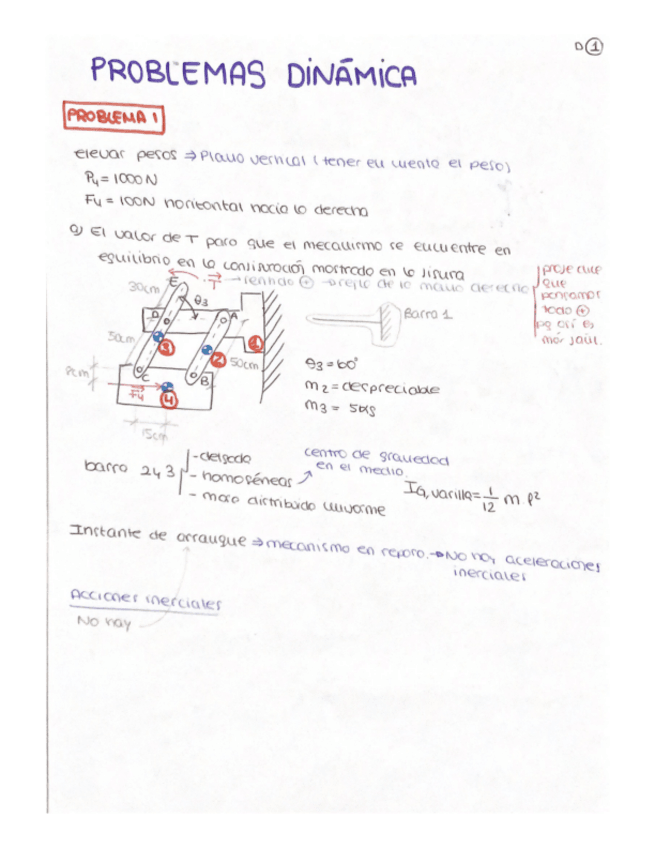 D ①
PROBLEMAS DINÁMICA
PROBLEMA 1
elevar pesos ⇒ Plano vertical (tener en cuenta el peso)
P4 = 1000 N
F4 = 100N horizontal hacia la derecha
a) El valor de T para que el mecanismo se encuentre en
equilibrio en la configuración mostrada en la figura
T → sentido ⊕ → regla de la mano derecha
que
pongamos
todo ⊕
pq así es
más fácil.
30cm
E
θ3
D
A
1
Barra 1
50cm
3
2
50cm
θ3 = 60°
8cm
C
B
m2 = despreciable
F4
4
m3 = 5kg
15cm
barra 2 y 3
- delgada
- homogéneas
- masa distribuida uniforme
centro de gravedad
en el medio.
IG, varilla = 1/12 m l²
Instante de arranque ⇒ mecanismo en reposo. → No hay aceleraciones
inerciales
Acciones inerciales
No hay